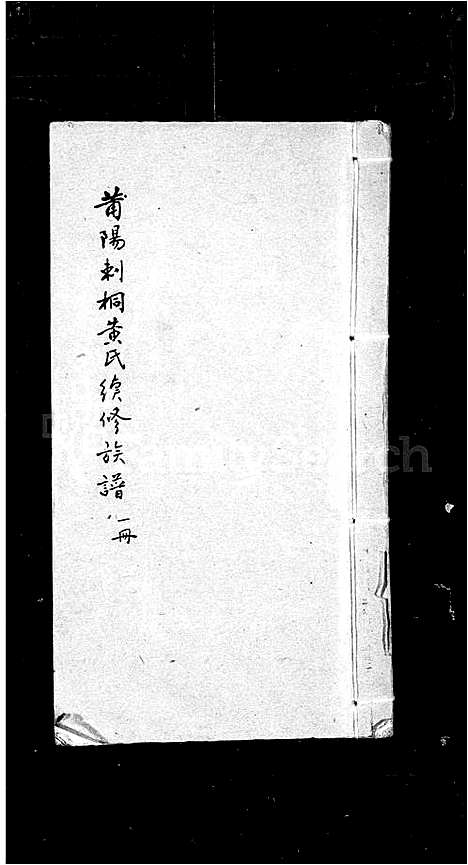 莆陽刺桐黄氏续修族譜 一冊